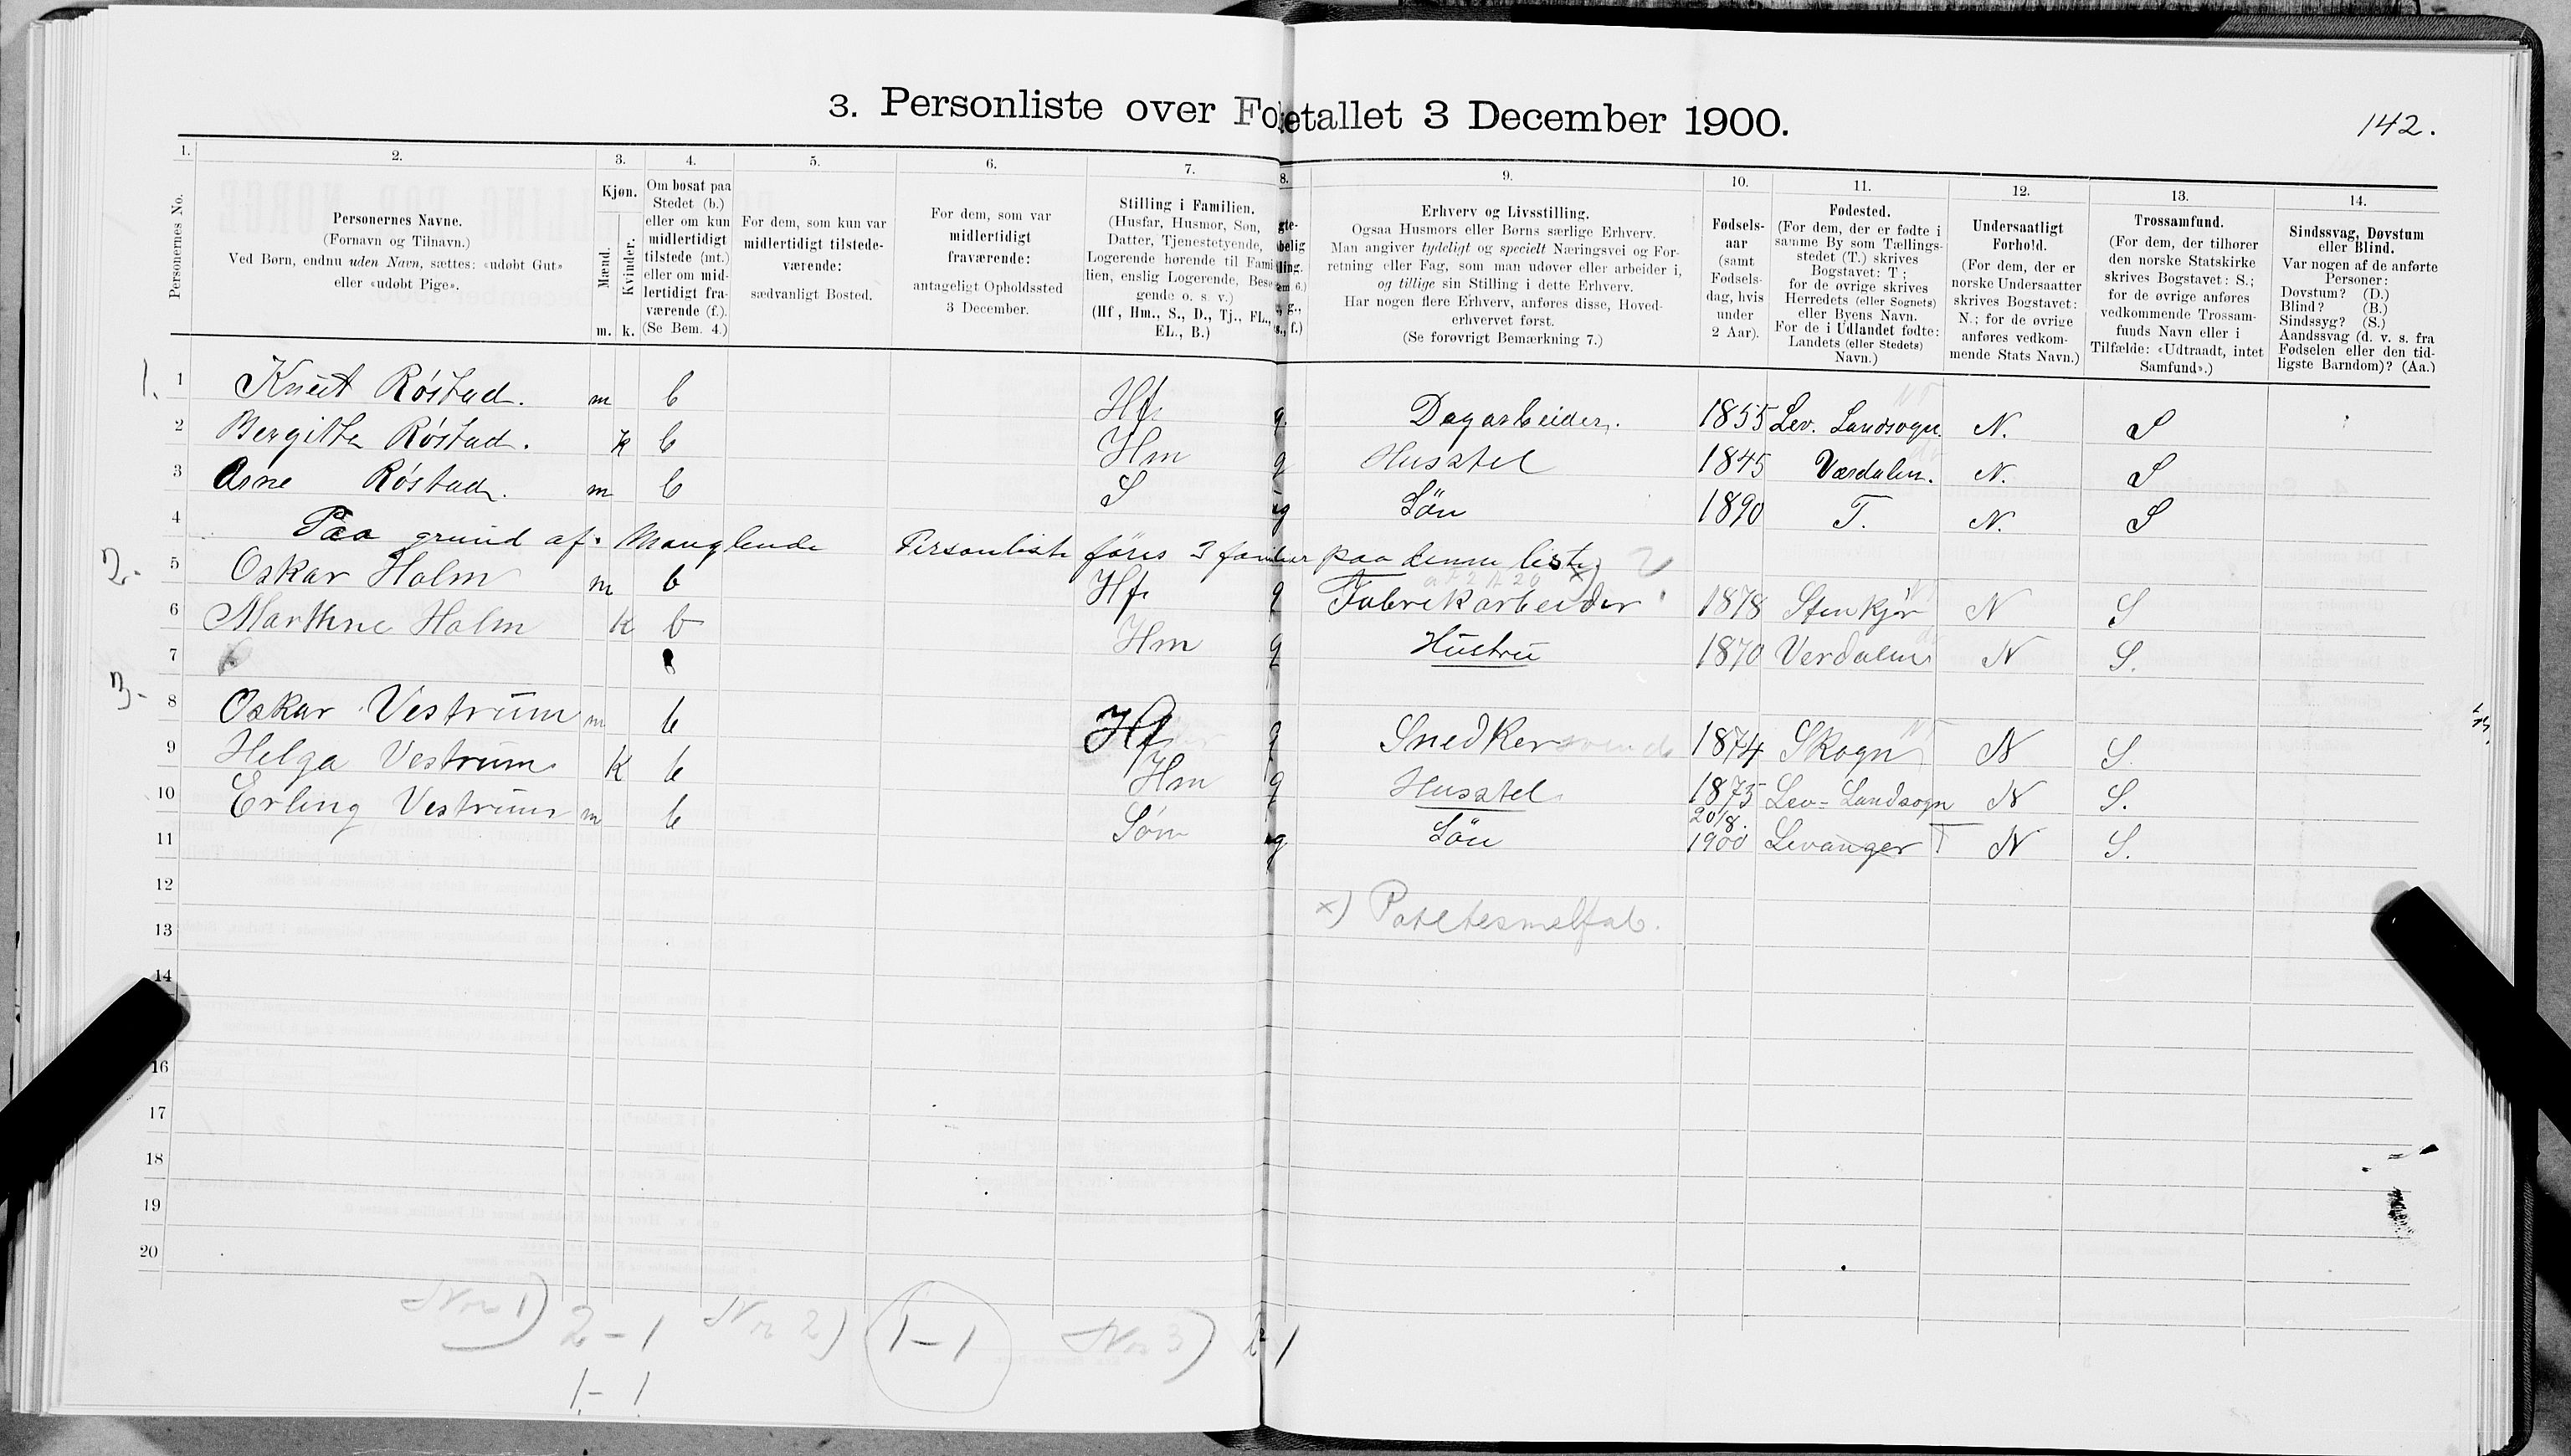 3. Personliste over Folketallet 3 December 1900.
142.
1. 2. 3. 4. 5. 6. 7. 8. 9. 10. 11. 12. 13. 14.
Personernes No.
Personernes Navne.
(Fornavn og Tilnavn.)
Ved Børn, endnu uden Navn, sættes: «udøbt Gut»
eller «udøbt Pige».
Kjøn.
Mænd.
Kvinder.
m. k.
Om bosat paa
Stedet (b.)
eller om kun
midlertidigt
tilstede (mt.)
eller om mid-
lertidigt fra-
værende (f.).
(Se Bem. 4.)
For dem, som kun var
midlertidigt tilstede-
værende:
sædvanligt Bosted.
For dem, som var
midlertidigt
fraværende:
antageligt Opholdssted
3 December.
Stilling i Familien.
(Husfar, Husmor, Søn,
Datter, Tjenestetyende,
Logerende hørende til Fami-
lien, enslig Logerende, Besø-
gende o. s. v.)
(Hf, Hm., S., D., Tj., FL.,
EL., B.)
Erhverv og Livsstilling.
Ogsaa Husmors eller Børns særlige Erhverv.
Man angiver tydeligt og specielt Næringsvei og For-
retning eller Fag, som man udøver eller arbeider i,
og tillige sin Stilling i dette Erhverv.
Har nogen flere Erhverv, anføres disse, Hoved-
erhvervet først.
(Se forøvrigt Bemærkning 7.)
Fødsels-
aar
(samt
Fødsels-
dag, hvis
under
2 Aar).
Fødested.
(For dem, der er fødte i
samme By som Tællings-
stedet (T.) skrives
Bogstavet: T;
for de øvrige skrives
Herredets (eller Sognets)
eller Byens Navn.
For de i Udlandet fødte:
Landets (eller Stedets)
Navn.)
Undersaatligt
Forhold.
(For dem, der er
norske Undersaatter
skrives Bogstavet:
N.; for de øvrige
anføres vedkom-
mende Stats Navn.)
Trossamfund.
(For dem, der tilhører
den norske Statskirke
skrives Bogstavet: S.;
for de øvrige anføres
vedkommende Trossam-
funds Navn eller i
Tilfælde: «Udtraadt, intet
Samfund».)
Sindssvag, Døvstum
eller Blind.
Var nogen af de anførte
Personer:
Døvstum? (D.)
Blind? (B.)
Sindssyg? (S.)
Aandssvag (d. v. s. fra
Fødselen eller den tid-
ligste Barndom)? (Aa.)
1. 1 Knut Røstad. m b Hf. g. Dagarbeider. 1855 Lev. Landsogn. N. S
2 Bergitte Røstad. k b Hm g Husstel 1845 Værdalen. N. S
3 Arne Røstad. m b S ug Søn 1890 T. N. S
4 Paa grund af Manglende Personliste føres 3 familier paa denne liste
2. 5 Oskar Holm m b Hf. g Fabrikarbeider x) 1878 Stenkjær N S
6 Marthine Holm k b Hm g Hustru 1870 Verdalen N S.
7
3. 8 Oskar Vestrum m b Hf g Snedkersvend 1874 Skogn N S.
9 Helga Vestrum k b Hm g Husstel 1875 Lev. Landsogn N S.
10 Erling Vestrum m b Søn ug Søn 20/8. 1900 Levanger T N S.
11
12
x) Potetesmelfab.
13
14
16
17
18
19
20
Nr 1) 2-1 Nr 2) 1-1 Nr 3) 2-1
1-1